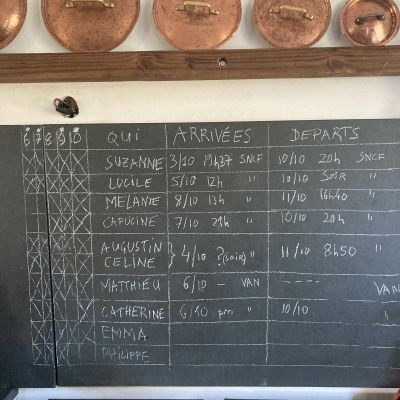 6 7 8 9 10 QUI ARRIVÉES DEPARTS
SUZANNE 3/10 19h37 SNCF 10/10 20h SNCF
LUCILE 5/10 12h " 10/10 SOIR "
MELANIE 8/10 13h " 11/10 16h40 "
CAPUCINE 7/10 21h " 10/10 20h "
AUGUSTIN
CELINE } 4/10 ?(soir) " 11/10 8h50 "
MATTHIEU 6/10 - VAN ---- VAN
CATHERINE 6/10 pm " 10/10 "
EMMA
PHILIPPE